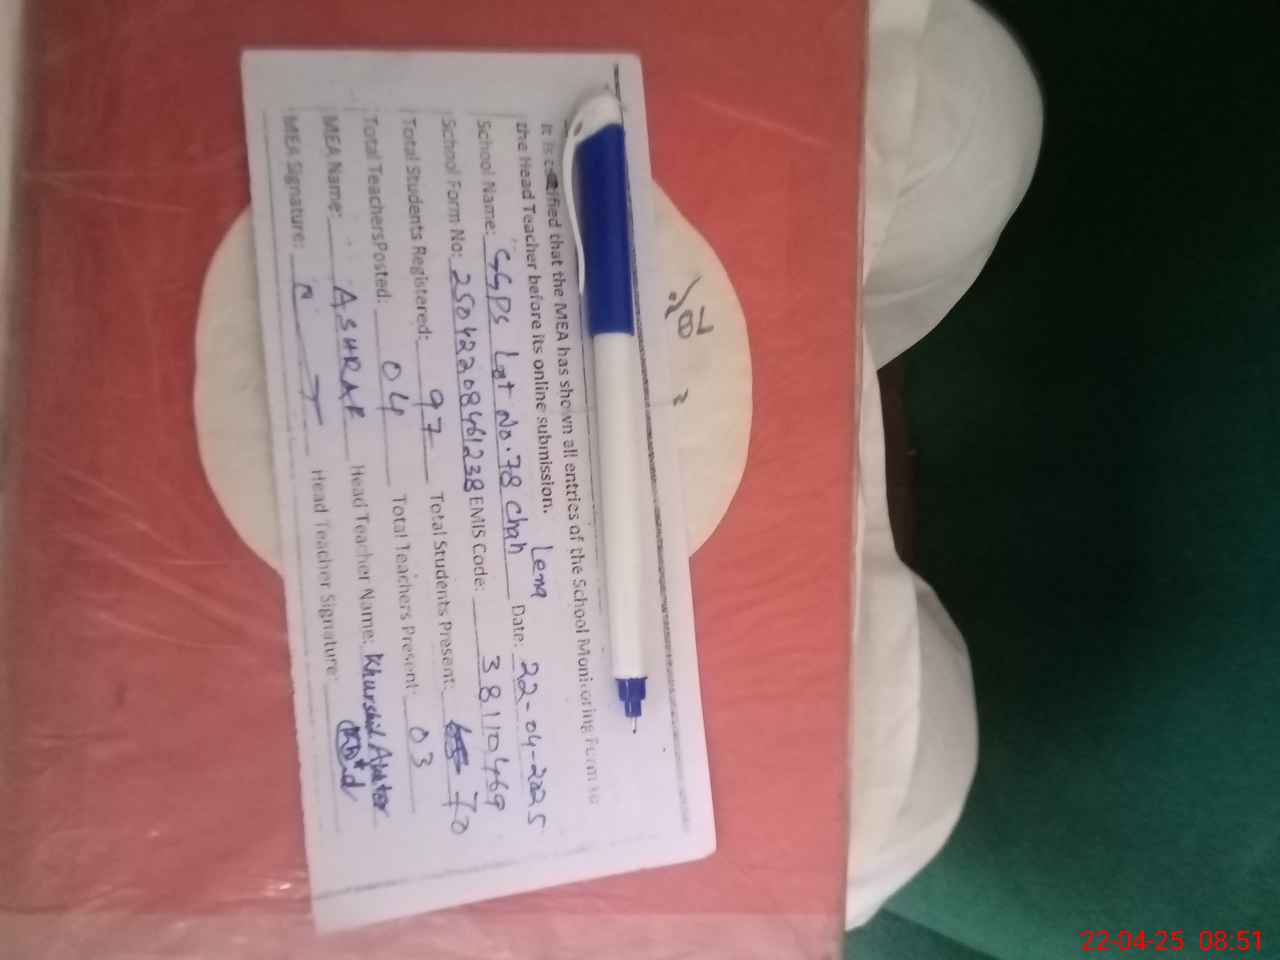 It is certified that the MEA has shown all entries of the School Monitoring Form to
the Head Teacher before its online submission.
School Name: GGPS Lat No.78 Chah Lena Date: 22-04-2025
School Form No: 25042208461238 EMIS Code: 38110469
Total Students Registered: 97 Total Students Present: 70
Total TeachersPosted: 04 Total Teachers Present: 03
MEA Name: ASHRAF Head Teacher Name: Khurshid Akhtar
MEA Signature: Head Teacher Signature:
22-04-25 08:51